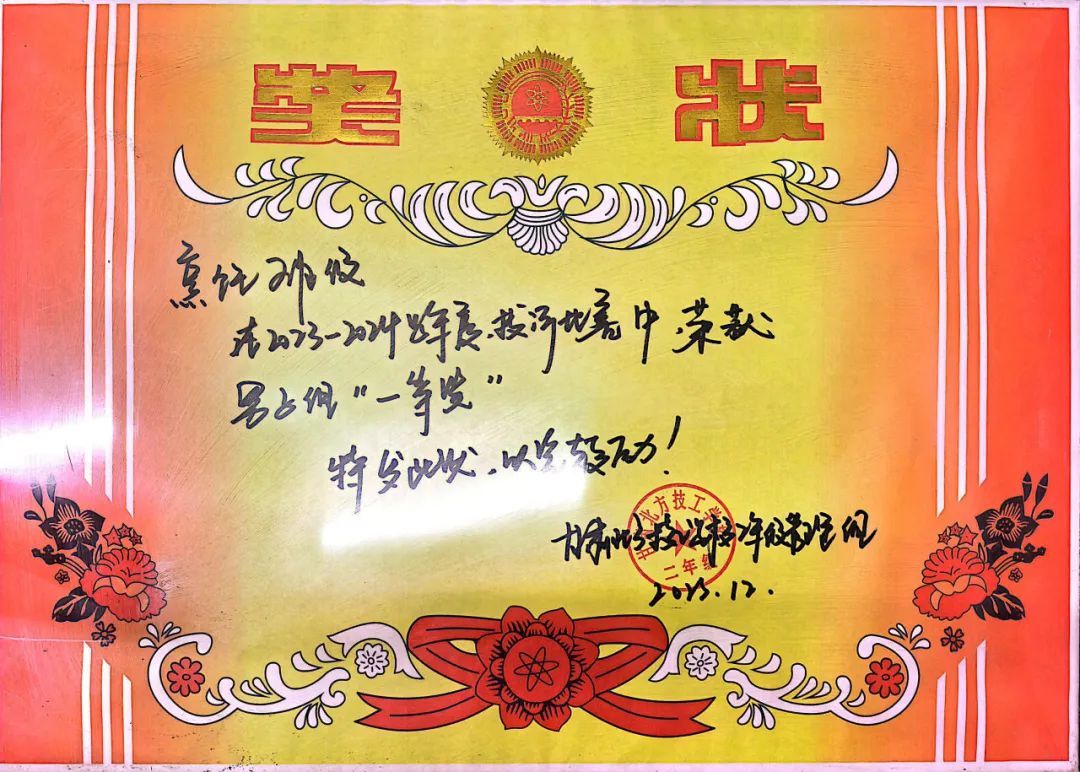 奖 状
烹饪班级
在2023-2024学年度拔河比赛中荣获
男子组“一等奖”
特发此状，以资鼓励！
甘肃北方技工学校二年级管理组
2023.12.
甘肃北方技工学校
二年级